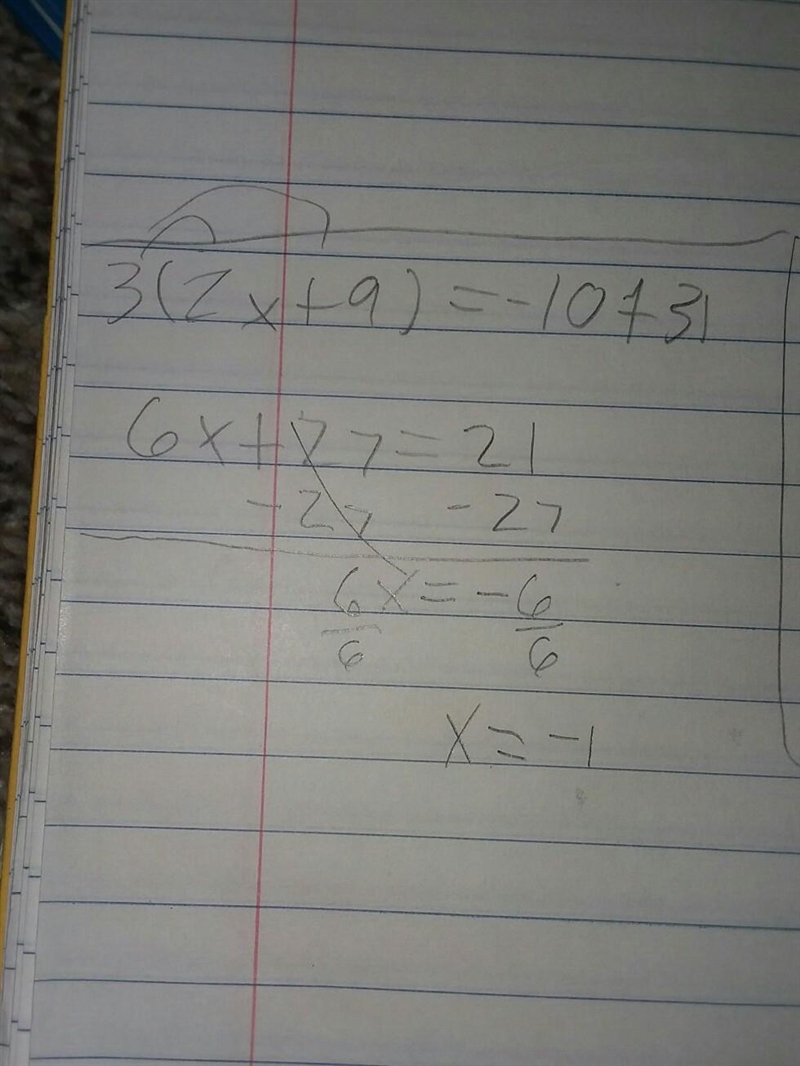 3(2x+9)=-10+31
6x+27=21
-27 -27
6x=-6
6 6
x=-1